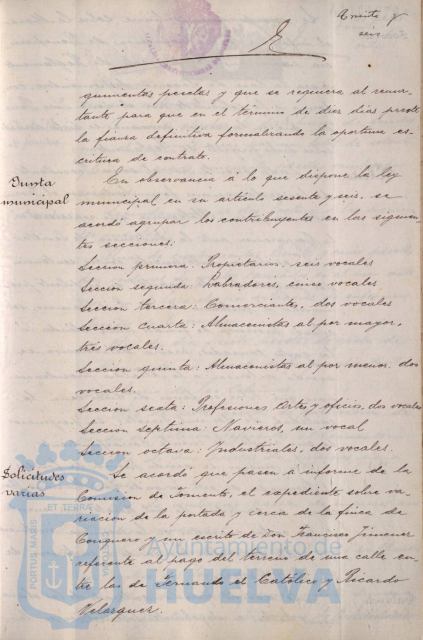 Treinta y
seis
quinientas pesetas y que se requiera al rema-
tante para que en el término de diez días preste
la fianza definitiva formalizando la oportuna es-
critura de contrato.
Junta
municipal
En observancia á lo que dispone la ley
municipal en su artículo sesenta y seis, se
acordó agrupar los contribuyentes en las siguien-
tes secciones:
Seccion primera: Propietarios: seis vocales
Seccion segunda: Labradores, cinco vocales
Seccion tercera: Comerciantes, dos vocales
Seccion cuarta: Almacenistas al por mayor,
tres vocales.
Seccion quinta: Almacenistas al por menor. dos
vocales.
Seccion sexta: Profesiones Artes y oficios, dos vocales
Seccion septima: Navieros, un vocal
Seccion octava: Industriales, dos vocales.
Solicitudes
varias
Se acordó que pasen á informe de la
Comision de Fomento, el expediente sobre va-
riacion de la portada y cerca de la finca de
Conquero y un escrito de Don Francisco Jimenez
referente al pago del terreno de una calle en-
tre las de Fernando el Católico y Ricardo
Velazquez.
PORTUS MARIS
ET TERRAE
Ayuntamiento de
HUELVA